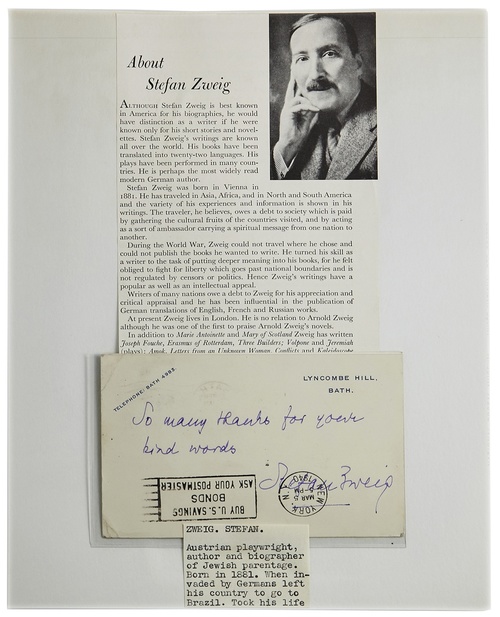 About
Stefan Zweig
ALTHOUGH Stefan Zweig is best known
in America for his biographies, he would
have distinction as a writer if he were
known only for his short stories and novel-
ettes. Stefan Zweig's writings are known
all over the world. His books have been
translated into twenty-two languages. His
plays have been performed in many coun-
tries. He is perhaps the most widely read
modern German author.
Stefan Zweig was born in Vienna in
1881. He has traveled in Asia, Africa, and in North and South America
and the variety of his experiences and information is shown in his
writings. The traveler, he believes, owes a debt to society which is paid
by gathering the cultural fruits of the countries visited, and by acting
as a sort of ambassador carrying a spiritual message from one nation to
another.
During the World War, Zweig could not travel where he chose and
could not publish the books he wanted to write. He turned his skill as
a writer to the task of putting deeper meaning into his books, for he felt
obliged to fight for liberty which goes past national boundaries and is
not regulated by censors or politics. Hence Zweig's writings have a
popular as well as an intellectual appeal.
Writers of many nations owe a debt to Zweig for his appreciation and
critical appraisal and he has been influential in the publication of
German translations of English, French and Russian works.
At present Zweig lives in London. He is no relation to Arnold Zweig
although he was one of the first to praise Arnold Zweig's novels.
In addition to Marie Antoinette and Mary of Scotland Zweig has written
Joseph Fouche, Erasmus of Rotterdam, Three Builders; Volpone and Jeremiah
(plays); Amok, Letters from an Unknown Woman, Conflicts and Kaleidoscope
TELEPHONE: BATH 4985.
LYNCOMBE HILL,
BATH.
So many thanks for your
kind words
Stefan Zweig
BUY U.S. SAVINGS
BONDS
ASK YOUR POSTMASTER
NEW YORK, N.
MAR 5
5 PM
1940
ZWEIG. STEFAN.
Austrian playwright,
author and biographer
of Jewish parentage.
Born in 1881. When in-
vaded by Germans left
his country to go to
Brazil. Took his life